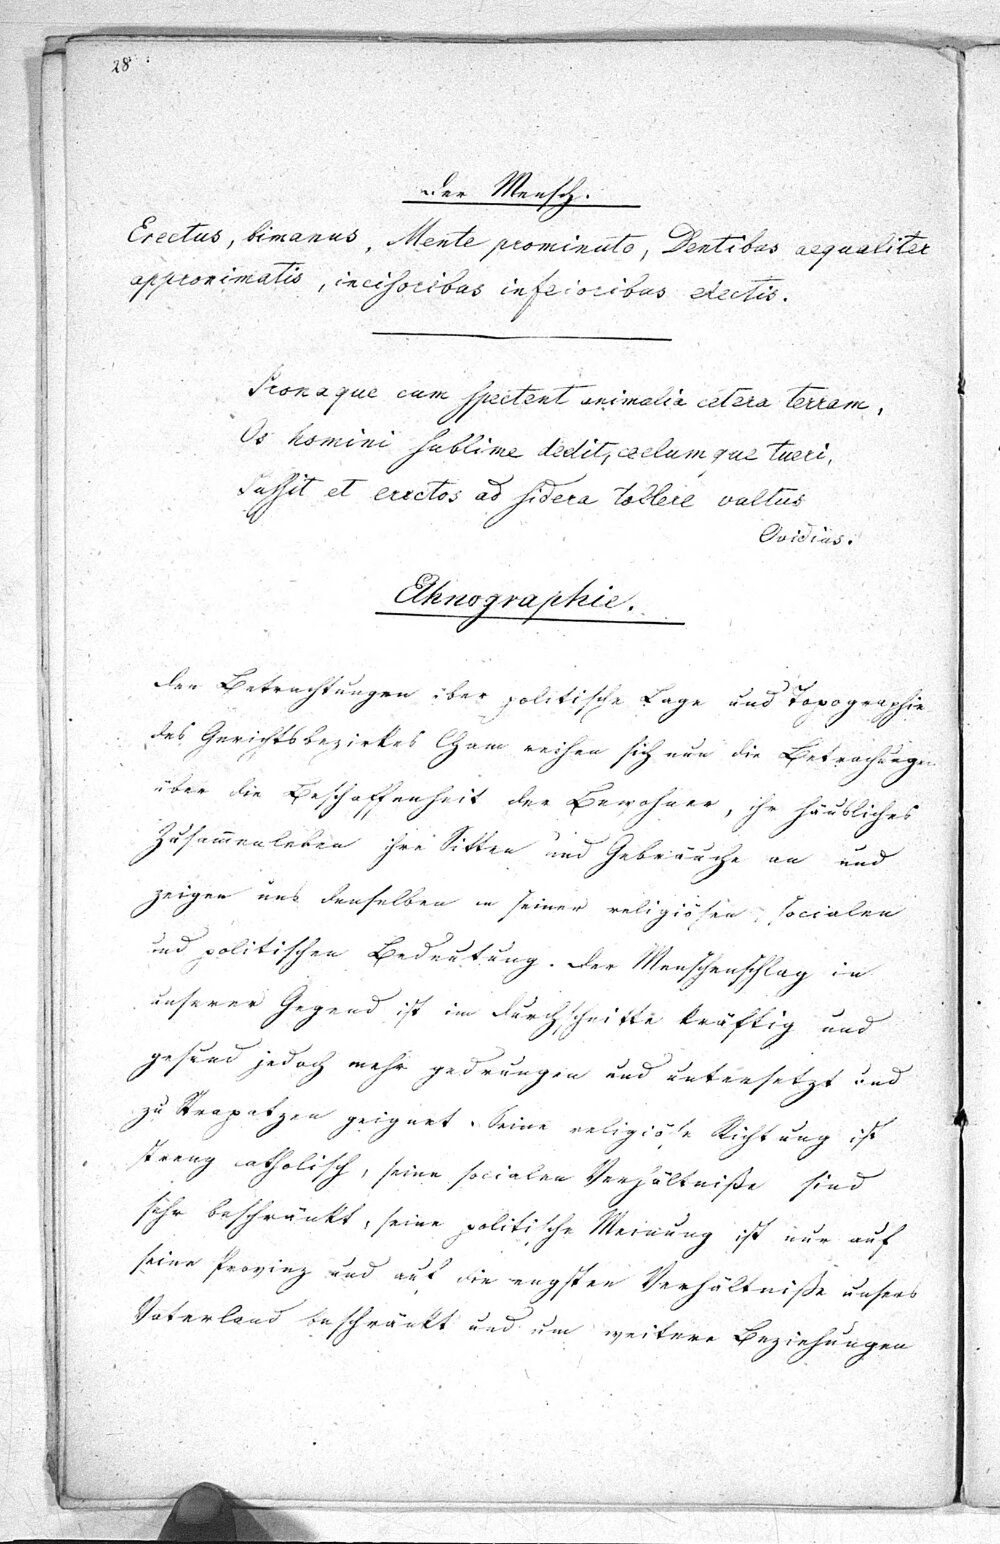 28
Der Mensch.
Erectus, bimanus, Mente prominuto, Dentibus aequaliter
approximatis, incisoribus inferioribus erectis.
Pronaque cum spectent animalia cetera terram,
Os homini sublime dedit, coelumque tueri,
Jussit et erectos ad sidera tollere vultus
Ovidius.
Ethnographie.
Den Betrachtungen über politische Lage und Topographie
des Gerichtsbezirkes Cham reihen sich nun die Betrachtungen
über die Beschaffenheit der Bewohner, ihr häusliches
Zusammenleben ihre Sitten und Gebräuche an und
zeigen uns denselben in seiner religiösen, socialen
und politischen Bedeutung. Der Menschenschlag in
unserer Gegend ist im Durchschnitte kräftig und
gesund jedoch mehr gedrungen und untersetzt und
zu Strapatzen geignet. Seine religiöse Richtung ist
streng catholisch, seine socialen Verhältniße sind
sehr beschränkt, seine politische Meinung ist nur auf
seine Provinz und auf die engsten Verhältniße unsers
Vaterland beschränkt und um weitere Beziehungen